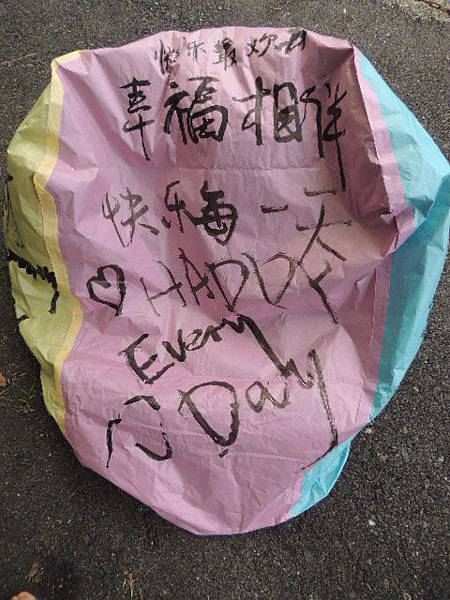 快乐最欢
幸福相伴
快乐每一天
♡ HAPPY
Every
Day